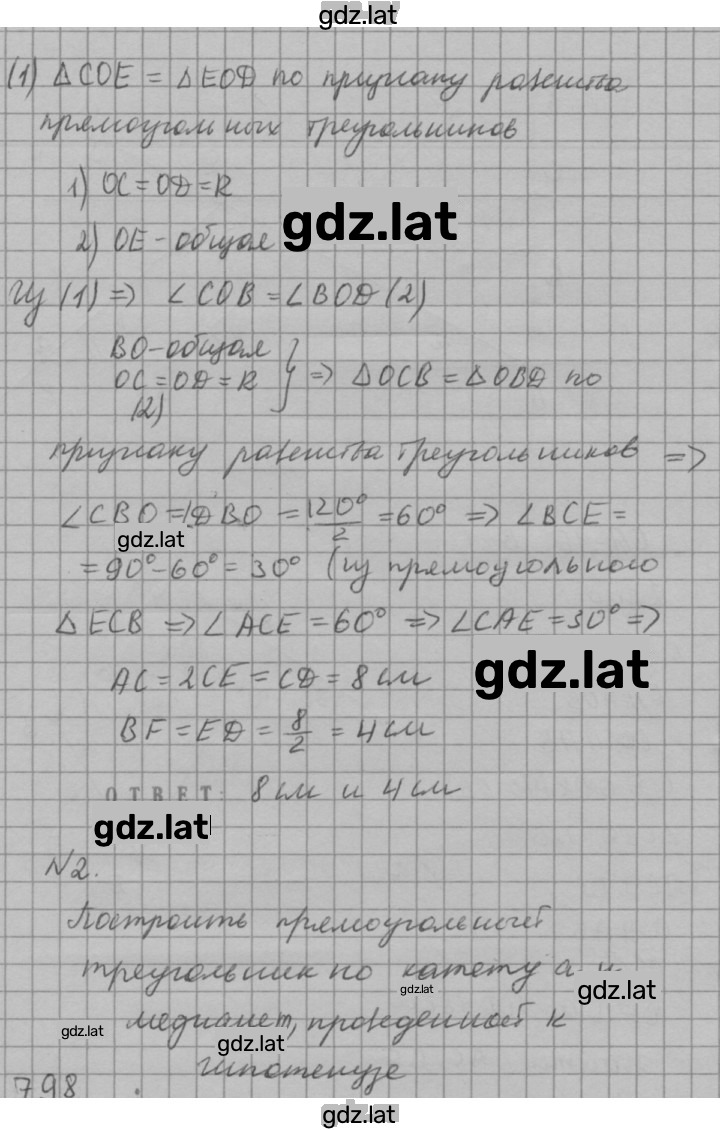 gdz.lat
(1) △COE = △EOD по признаку равенства
прямоугольных треугольников
1) OC = OD = R
gdz.lat
2) OE - общая
Из (1) => ∠COB = ∠BOD (2)
BO - общая
OC = OD = R } => △OCB = △OBD по
(2)
признаку равенства треугольников =>
∠CBO = ∠DBO = 120°/2 = 60° => ∠BCE =
gdz.lat
= 90° - 60° = 30° (из прямоугольного
△ECB => ∠ACE = 60° => ∠CAE = 30° =>
gdz.lat
AC = 2CE = CD = 8 см
BF = ED = 8/2 = 4 см
ОТВЕТ: 8 см и 4 см
gdz.lat
N2.
Построить прямоугольный
треугольник по катету a и
gdz.lat
gdz.lat
медианет, проведенной к
gdz.lat
gdz.lat
гипотенузе
798
gdz.lat